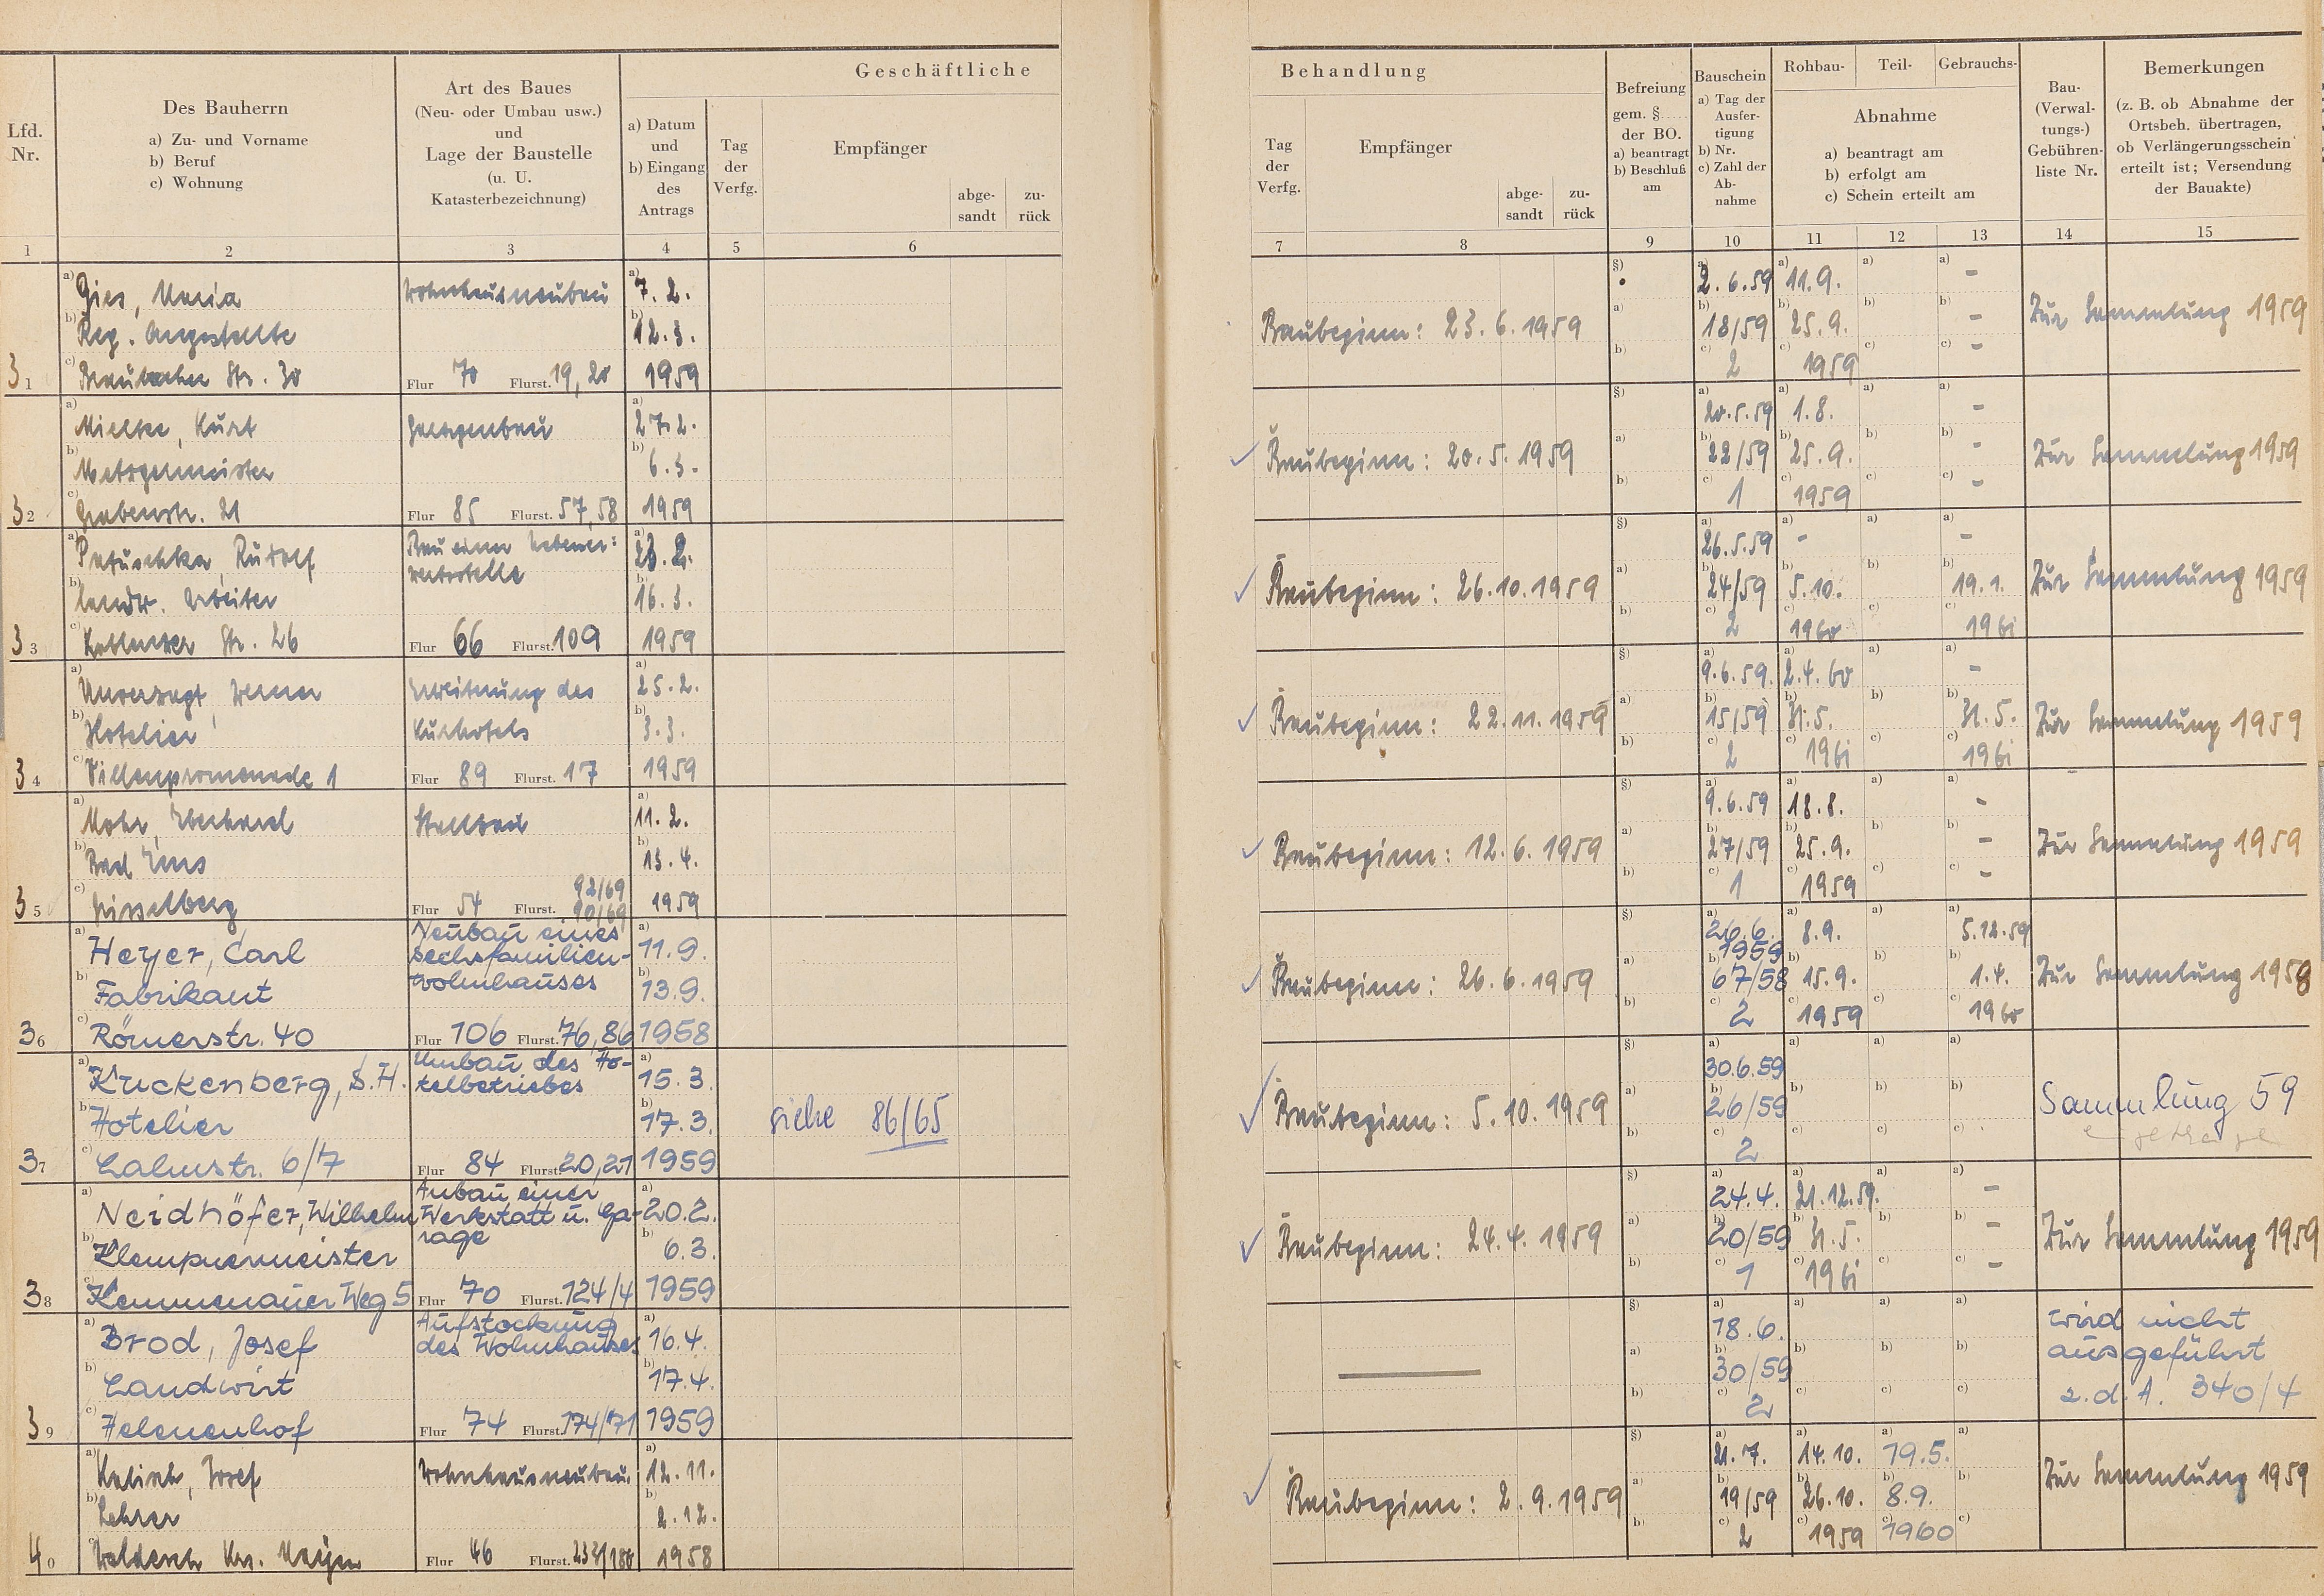 Geschäftliche
Lfd. Nr.
Des Bauherrn
a) Zu- und Vorname
b) Beruf
c) Wohnung
Art des Baues
(Neu- oder Umbau usw.)
und
Lage der Baustelle
(u. U.
Katasterbezeichnung)
a) Datum
und
b) Eingang
des
Antrags
Tag
der
Verfg.
Empfänger
abge-
sandt
zu-
rück
1 2 3 4 5 6
Behandlung
Tag
der
Verfg.
Empfänger
abge-
sandt
zu-
rück
Befreiung
gem. §
der BO.
a) beantragt
b) Beschluß
am
Bauschein
a) Tag der
Ausfer-
tigung
b) Nr.
c) Zahl der
Ab-
nahme
Rohbau- Teil- Gebrauchs-
Abnahme
a) beantragt am
b) erfolgt am
c) Schein erteilt am
Bau-
(Verwal-
tungs-)
Gebühren-
liste Nr.
Bemerkungen
(z. B. ob Abnahme der
Ortsbeh. übertragen,
ob Verlängerungsschein
erteilt ist; Versendung
der Bauakte)
7 8 9 10 11 12 13 14 15
a) Gies, Maria Wohnhausneubau a) 7. 2. §) a) 2. 6. 59 a) 11. 9. a) a) -
b) Reg. Angestellte b) 12. 3. Baubeginn: 23. 6. 1959 a) b) 18/59 b) 25. 9. b) b) - Zur Sammlung 1959
31 c) Braubacher Str. 30 Flur 70 Flurst. 19, 20 1959 b) c) 2 1959 c) c) -
a) Mielke, Kurt Garagenbau a) 27. 2. §) a) 20. 5. 59 a) 1. 8. a) a) -
b) Metzgermeister b) 6. 3. Baubeginn: 20. 5. 1959 a) b) 22/59 b) 25. 9. b) b) - Zur Sammlung 1959
32 c) Grabenstr. 21 Flur 85 Flurst. 57, 58 1959 b) c) 1 1959 c) c) -
a) Patuschka, Rudolf Bau einer Nebener-
werbsstelle a) 23. 2. §) a) 26. 5. 59 a) - a) a) -
b) landw. Arbeiter b) 16. 3. Baubeginn: 26. 10. 1959 a) b) 24/59 b) 5. 10. b) b) 19. 1. Zur Sammlung 1959
33 c) Koblenzer Str. 26 Flur 66 Flurst. 109 1959 b) c) 2 c) 1960 c) c) 1961
a) Unverzagt, Werner Erweiterung des a) 25. 2. §) a) 9. 6. 59. a) 2. 4. 60 a) a) -
b) Hotelier Kurhotels b) 3. 3. Baubeginn: 22. 11. 1959 a) b) 15/59 b) 31. 5. b) b) 31. 5. Zur Sammlung 1959
34 c) Villenpromenade 1 Flur 89 Flurst. 17 1959 b) c) 2 c) 1961 c) c) 1961
a) Mohr, Eberhard Stallbau a) 11. 2. §) a) 9. 6. 59 a) 18. 8. a) a) -
b) Bad Ems b) 13. 4. Baubeginn: 12. 6. 1959 a) b) 27/59 b) 25. 9. b) b) - Zur Sammlung 1959
35 c) Flur 54 Flurst. 92/69
90/69 1959 b) c) 1 c) 1959 c) c) -
a) Heyer, Carl Neubau eines
Sechsfamilien-
wohnhauses a) 11. 9. §) a) 26. 6.
1959 a) 8. 9. a) a) 5. 12. 59
b) Fabrikant b) 13. 9. Baubeginn: 26. 6. 1959 a) b) 67/58 b) 15. 9. b) b) 1. 4. Zur Sammlung 1958
36 c) Römerstr. 40 Flur 106 Flurst. 76, 86 1958 b) c) 2 c) 1959 c) c) 1960
a) Kruckenberg, S. H. Umbau des Ho-
telbetriebes a) 15. 3. §) a) 30. 6. 59 a) a) a)
b) Hotelier b) 17. 3. siehe 86/65 Baubeginn: 5. 10. 1959 a) b) 26/59 b) b) b) Sammlung 59
37 c) Lahnstr. 6/7 Flur 84 Flurst. 20, 21 1959 b) c) 2 c) c) c)
a) Neidhöfer, Wilhelm Anbau einer
Werkstatt u. Ga-
rage a) 20. 2. §) a) 24. 4. a) 21. 12. 59. a) a) -
b) Klempnermeister b) 6. 3. Baubeginn: 24. 4. 1959 a) b) 20/59 b) 31. 5. b) b) - Zur Sammlung 1959
38 c) Kemmenauer Weg 5 Flur 70 Flurst. 124/4 1959 b) c) 1 c) 1961 c) c) -
a) Brod, Josef Aufstockung
des Wohnhauses a) 16. 4. §) a) 18. 6. a) a) a) wird nicht
b) Landwirt b) 17. 4. a) b) 30/59 b) b) b) ausgeführt
39 c) Helenenhof Flur 74 Flurst. 174/71 1959 b) c) 2 c) c) c) z. d. A. 340/4
a) Kalisch, Josef Wohnhausneubau a) 12. 11. §) a) 21. 7. a) 14. 10. a) 19. 5. a)
b) Lehrer b) 2. 12. Baubeginn: 2. 9. 1959 a) b) 19/59 b) 26. 10. b) 8. 9. b) Zur Sammlung 1959
40 c) Krs. Mayen Flur 46 Flurst. 1958 b) c) 2 c) 1959 c) 1960 c)